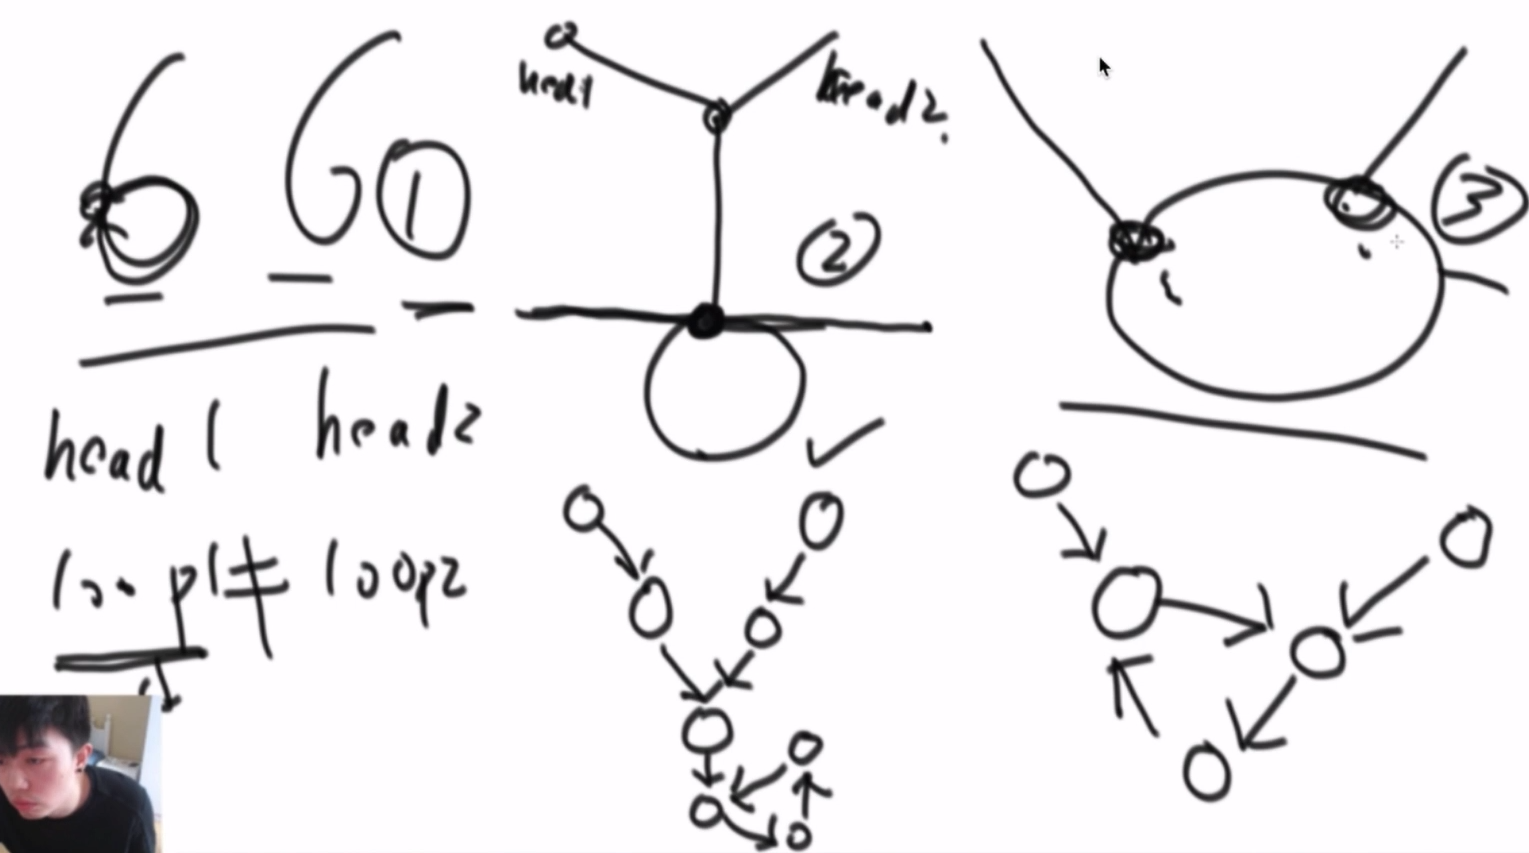 6 6 ①
head1 head2
loop1 ≠ loop2
head1
head2
②
③